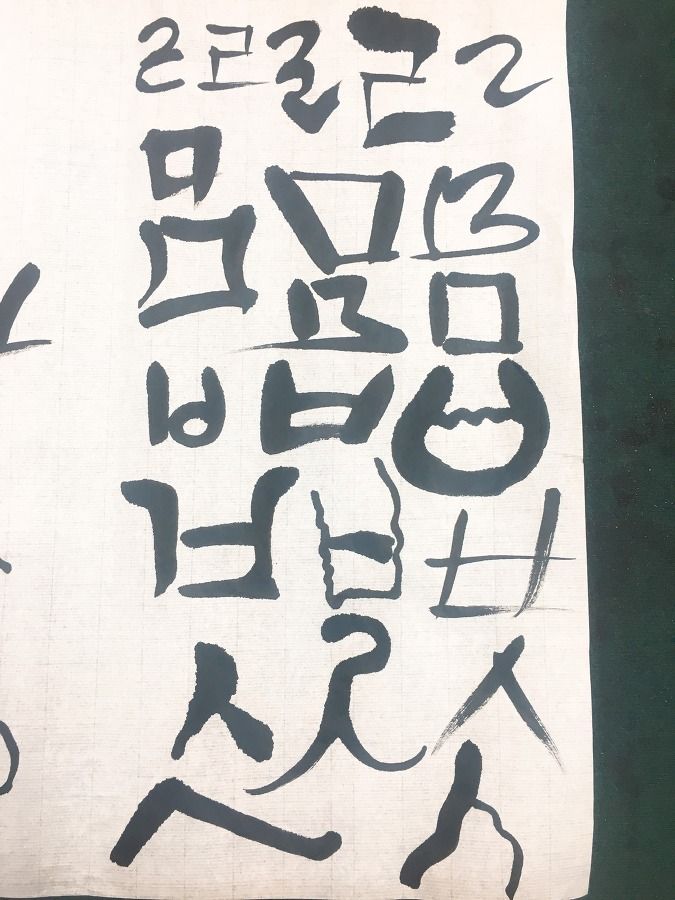 ㄹ ㄹ ㄹ ㄹ ㄹ
ㅁ ㅁ ㅁ
ㅁ ㅁ ㅁ
ㅂ ㅂ ㅂ
ㅂ ㅂ ㅂ
ㅅ ㅅ ㅅ
ㅅ ㅅ